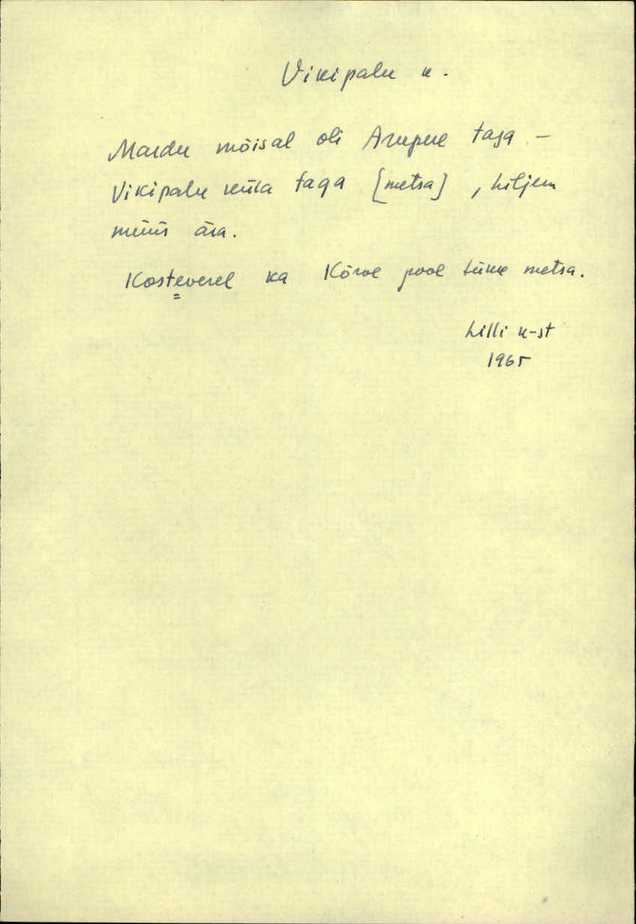 Vikipalu k.
Maardu mõisal oli Arupere taga –
Vikipalu küla taga [metsa], hiljem
müüs ära.
Kosteverel ka Kõrve pool tükk metsa.
Lilli k-st
1965